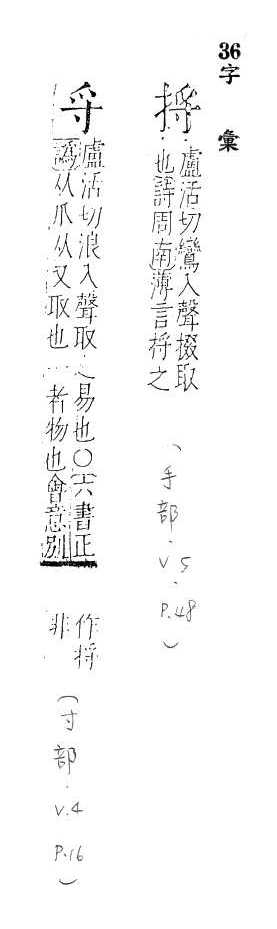 36字彙
捋
盧活切鸞入聲掇取
也詩周南薄言捋之
(手部.V5.P.48)
寽
盧活切浪入聲取 易也○六書正
譌从爪从又取也 者物也會意別
作捋
非
(寸部.V.4 P.16)